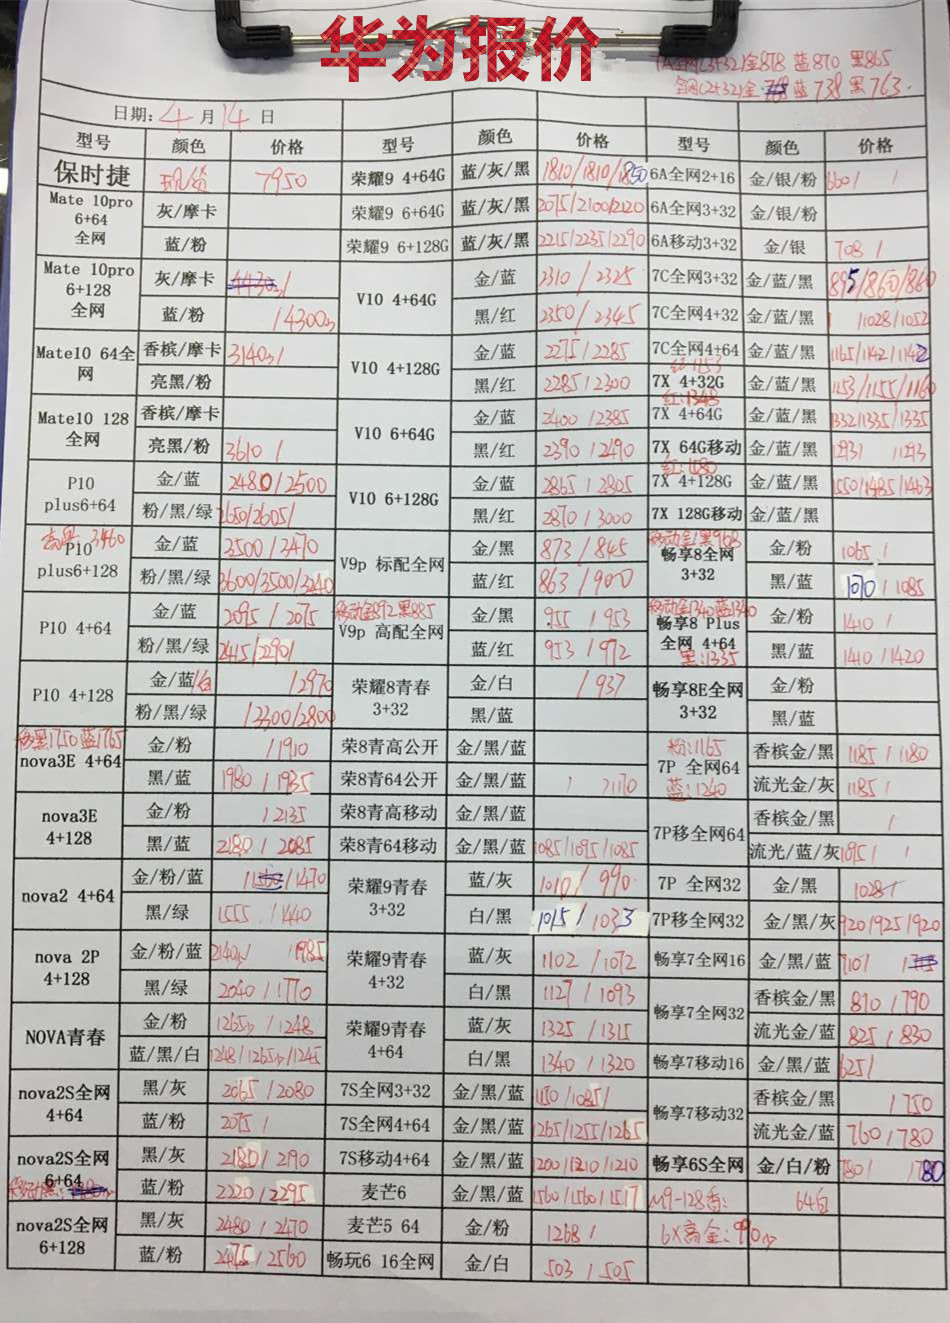 华为报价
7A全网(3+32)金878 蓝870 黑865
全网(2+32)金 蓝738 黑763
日期: 4 月 14 日
型号 颜色 价格 型号 颜色 价格 型号 颜色 价格
保时捷 现货 7950 荣耀9 4+64G 蓝/灰/黑 1810/1810/1850 6A全网2+16 金/银/粉 660/ /
Mate 10pro 6+64 全网 灰/摩卡 荣耀9 6+64G 蓝/灰/黑 2075/2100/2120 6A全网3+32 金/银/粉
蓝/粉 荣耀9 6+128G 蓝/灰/黑 2215/2235/2290 6A移动3+32 金/银 708 /
Mate 10pro 6+128 全网 灰/摩卡 V10 4+64G 金/蓝 2310 / 2325 7C全网3+32 金/蓝/黑 895/860/860
蓝/粉 /4300 黑/红 2350 / 2345 7C全网4+32 金/蓝/黑 / /1028/1052
Mate10 64全网 香槟/摩卡 3140 / V10 4+128G 金/蓝 2275 / 2285 7C全网4+64 金/蓝/黑 1165/1142/1142
亮黑/粉 黑/红 2285/2300 红:1153 7X 4+32G 金/蓝/黑 1153/1155/1160
Mate10 128 全网 香槟/摩卡 V10 6+64G 金/蓝 2400 / 2385 红:1348 7X 4+64G 金/蓝/黑 1332/1335/1335
亮黑/粉 3610 / 黑/红 2390 / 2490 7X 64G移动 金/蓝/黑 1293/ /1293
P10 plus6+64 金/蓝 2480/2500 V10 6+128G 金/蓝 2865 / 2805 红:1480 7X 4+128G 金/蓝/黑 1550/1485/1463
粉/黑/绿 2650/2605/ 黑/红 2870 / 3000 7X 128G移动 金/蓝/黑
3460 P10 plus6+128 金/蓝 3500 / 3470 V9p 标配全网 金/黑 873 / 845 移动金/黑968 畅享8全网 3+32 金/粉 1065 /
粉/黑/绿 3600/3500/3240 蓝/红 863 / 900 黑/蓝 1070 / 1085
P10 4+64 金/蓝 2095 / 2075 移动金892黑885 V9p 高配全网 金/黑 955 / 953 移动金1340蓝1340 畅享8 Plus 全网 4+64 黑:1335 金/粉 1410 /
粉/黑/绿 2415/2290/ 蓝/红 953 / 972 黑/蓝 1410 / 1420
P10 4+128 金/蓝/白 /2970 荣耀8青春 3+32 金/白 / 937 畅享8E全网 3+32 金/粉
粉/黑/绿 /2300/2800 黑/蓝 黑/蓝
移黑1750 蓝1765 nova3E 4+64 金/粉 /1910 荣8青高公开 金/黑/蓝 粉:1165 7P 全网64 蓝:1240 香槟金/黑 1185 / 1180
黑/蓝 1980 / 1935 荣8青64公开 金/黑/蓝 / /1170 流光金/灰 1185 /
nova3E 4+128 金/粉 /2135 荣8青高移动 金/黑/蓝 7P移全网64 香槟金/黑 /
黑/蓝 2180 / 2085 荣8青64移动 金/黑/蓝 1085/1095/1085 流光/蓝/灰 1095/ /
nova2 4+64 金/粉/蓝 /1470 荣耀9青春 3+32 蓝/灰 1010 / 990 7P 全网32 金/黑 1028
黑/绿 1555 /1440 白/黑 1015 / 1033 7P移全网32 金/黑/灰 920/925/920
nova 2P 4+128 金/粉/蓝 2140 / 1985 荣耀9青春 4+32 蓝/灰 1102 / 1072 畅享7全网16 金/黑/蓝 710/
黑/绿 2040 / 1770 白/黑 1127 / 1093 畅享7全网32 香槟金/黑 810 / 790
NOVA青春 金/粉 1265 / 1248 荣耀9青春 4+64 蓝/灰 1325 / 1315 流光金/蓝 825 / 830
蓝/黑/白 1248/1265/1245 白/黑 1340 / 1320 畅享7移动16 金/黑/蓝 625/
nova2S全网 4+64 黑/灰 2065 / 2080 7S全网3+32 金/黑/蓝 1110 /1085/ 畅享7移动32 香槟金/黑 / 750
蓝/粉 2075 / 7S全网4+64 金/黑/蓝 1265/1255/1265 流光金/蓝 760 / 780
nova2S全网 6+64 黑/灰 2180 / 2190 7S移动4+64 金/黑/蓝 1200/1210/1210 畅享6S全网 金/白/粉 780/ /780
蓝/粉 2220 / 2295 麦芒6 金/黑/蓝 1560/1560/1517 M9-128香: 64白
nova2S全网 6+128 黑/灰 2480 / 2470 麦芒5 64 金/粉 1268 / 6X高金:990
蓝/粉 2475 / 2560 畅玩6 16全网 金/白 503 / 505